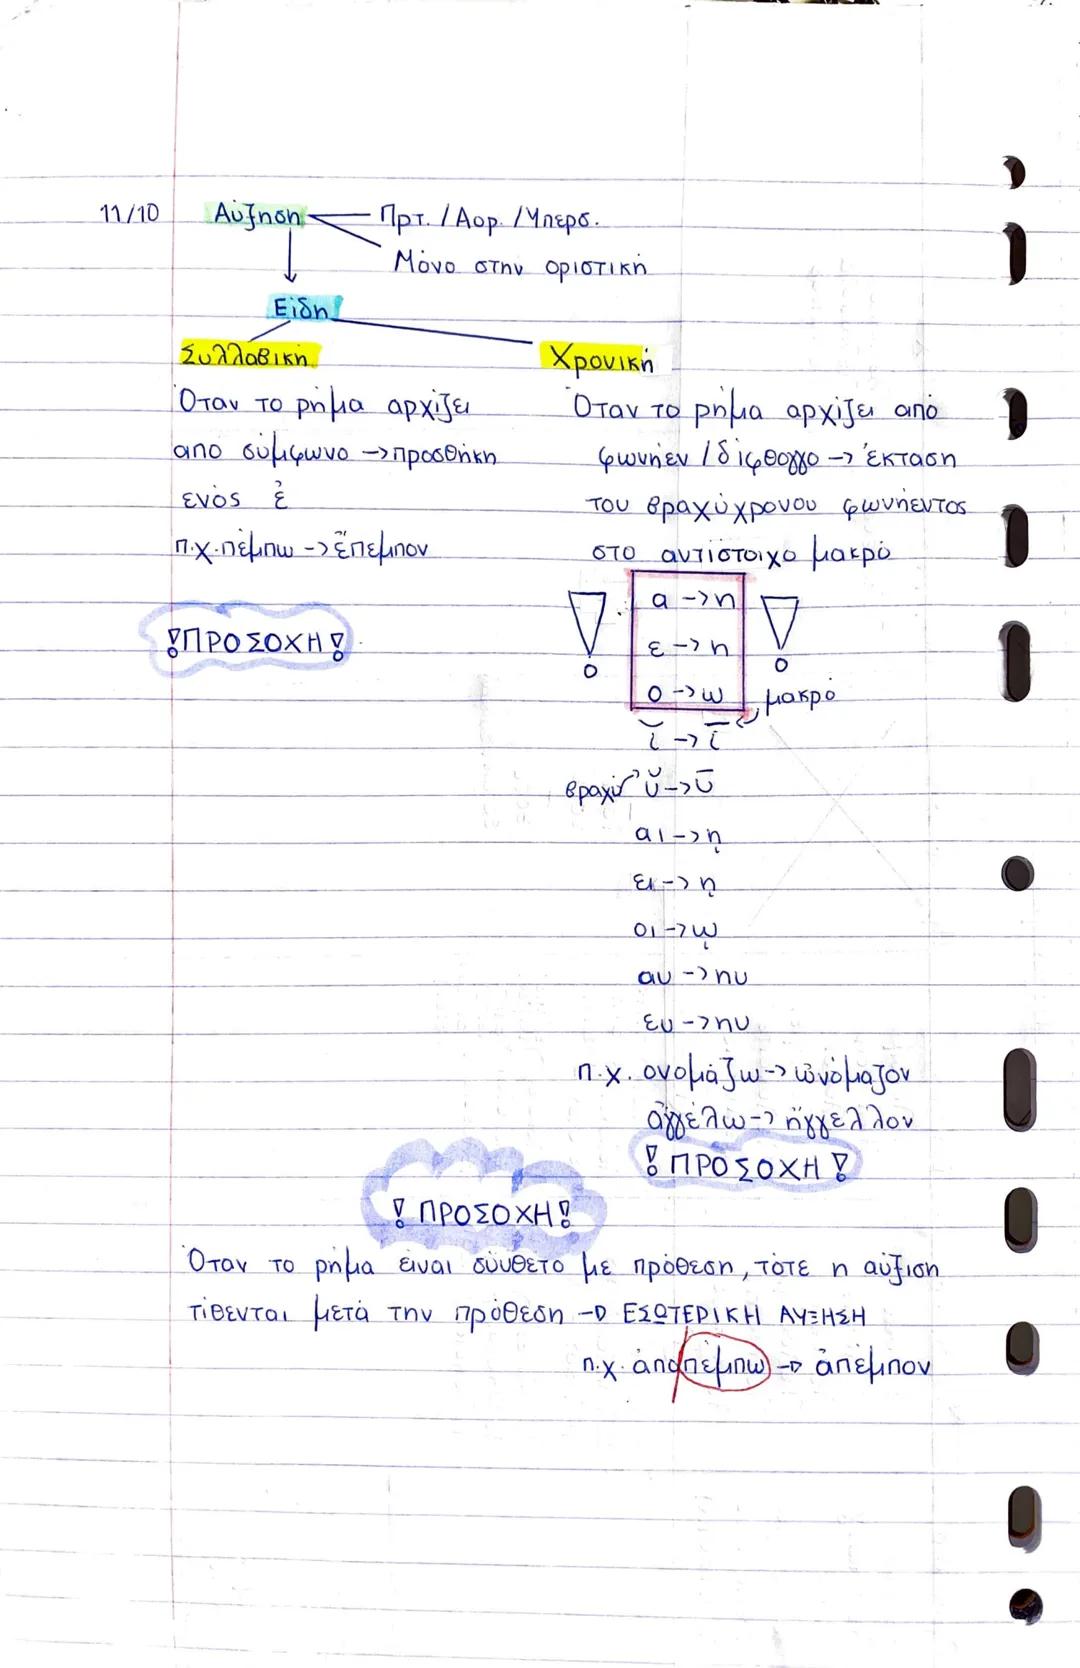 11/10 Αύξηση Πρτ. / Αορ. / Υπερσ.
Μόνο στην οριστική
Είδη
Συλλαβική
Όταν το ρήμα αρχίζει
από σύμφωνο -> προσθήκη
ενός ἐ
π.χ. πέμπω -> ἔπεμπον
!ΠΡΟΣΟΧΗ!
Χρονική
Όταν το ρήμα αρχίζει από
φωνήεν / δίφθογγο -> έκταση
του βραχύχρονου φωνήεντος
στο αντίστοιχο μακρό
! α -> η !
ε -> η
ο -> ω μακρό
ῐ -> ῑ
βραχύ ῠ -> ῡ
αι -> ῃ
ει -> ῃ
οι -> ῳ
αυ -> ηυ
ευ -> ηυ
π.χ. ονομάζω -> ὠνόμαζον
ἀγγέλω -> ἠγγελλον
! ΠΡΟΣΟΧΗ !
! ΠΡΟΣΟΧΗ!
Όταν το ρήμα είναι σύνθετο με πρόθεση, τότε η αύξιση
τίθενται μετά την πρόθεση -> ΕΣΩΤΕΡΙΚΗ ΑΥΞΗΣΗ
π.χ. ἀποπέμπω -> ἀπέμπον